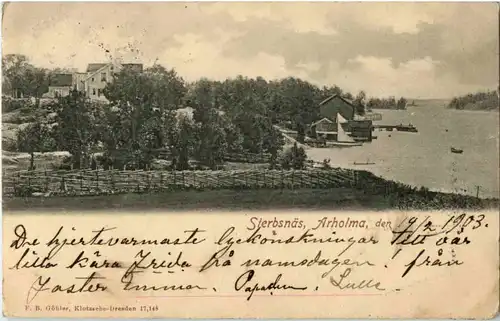 Sjerbsnäs, Arholma, den 19/2 1903.
De hjertevarmaste lyckönskningar till vår
lilla kära Frida på namsdagen. från
Faster Emma. Papaden. Lulle.
F. B. Göhler, Klotzsche-Dresden 17,148